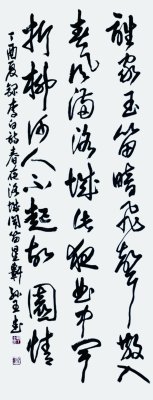 誰家玉笛暗飛聲散入
春风滿洛城此夜曲中闻
折柳何人不起故園情
丁酉夏錄李白詩春夜洛城聞笛